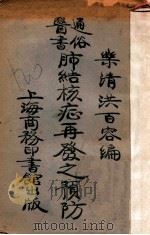 樂清洪百容編
通俗醫書
肺結核症再發之預防
上海商務印書館出版